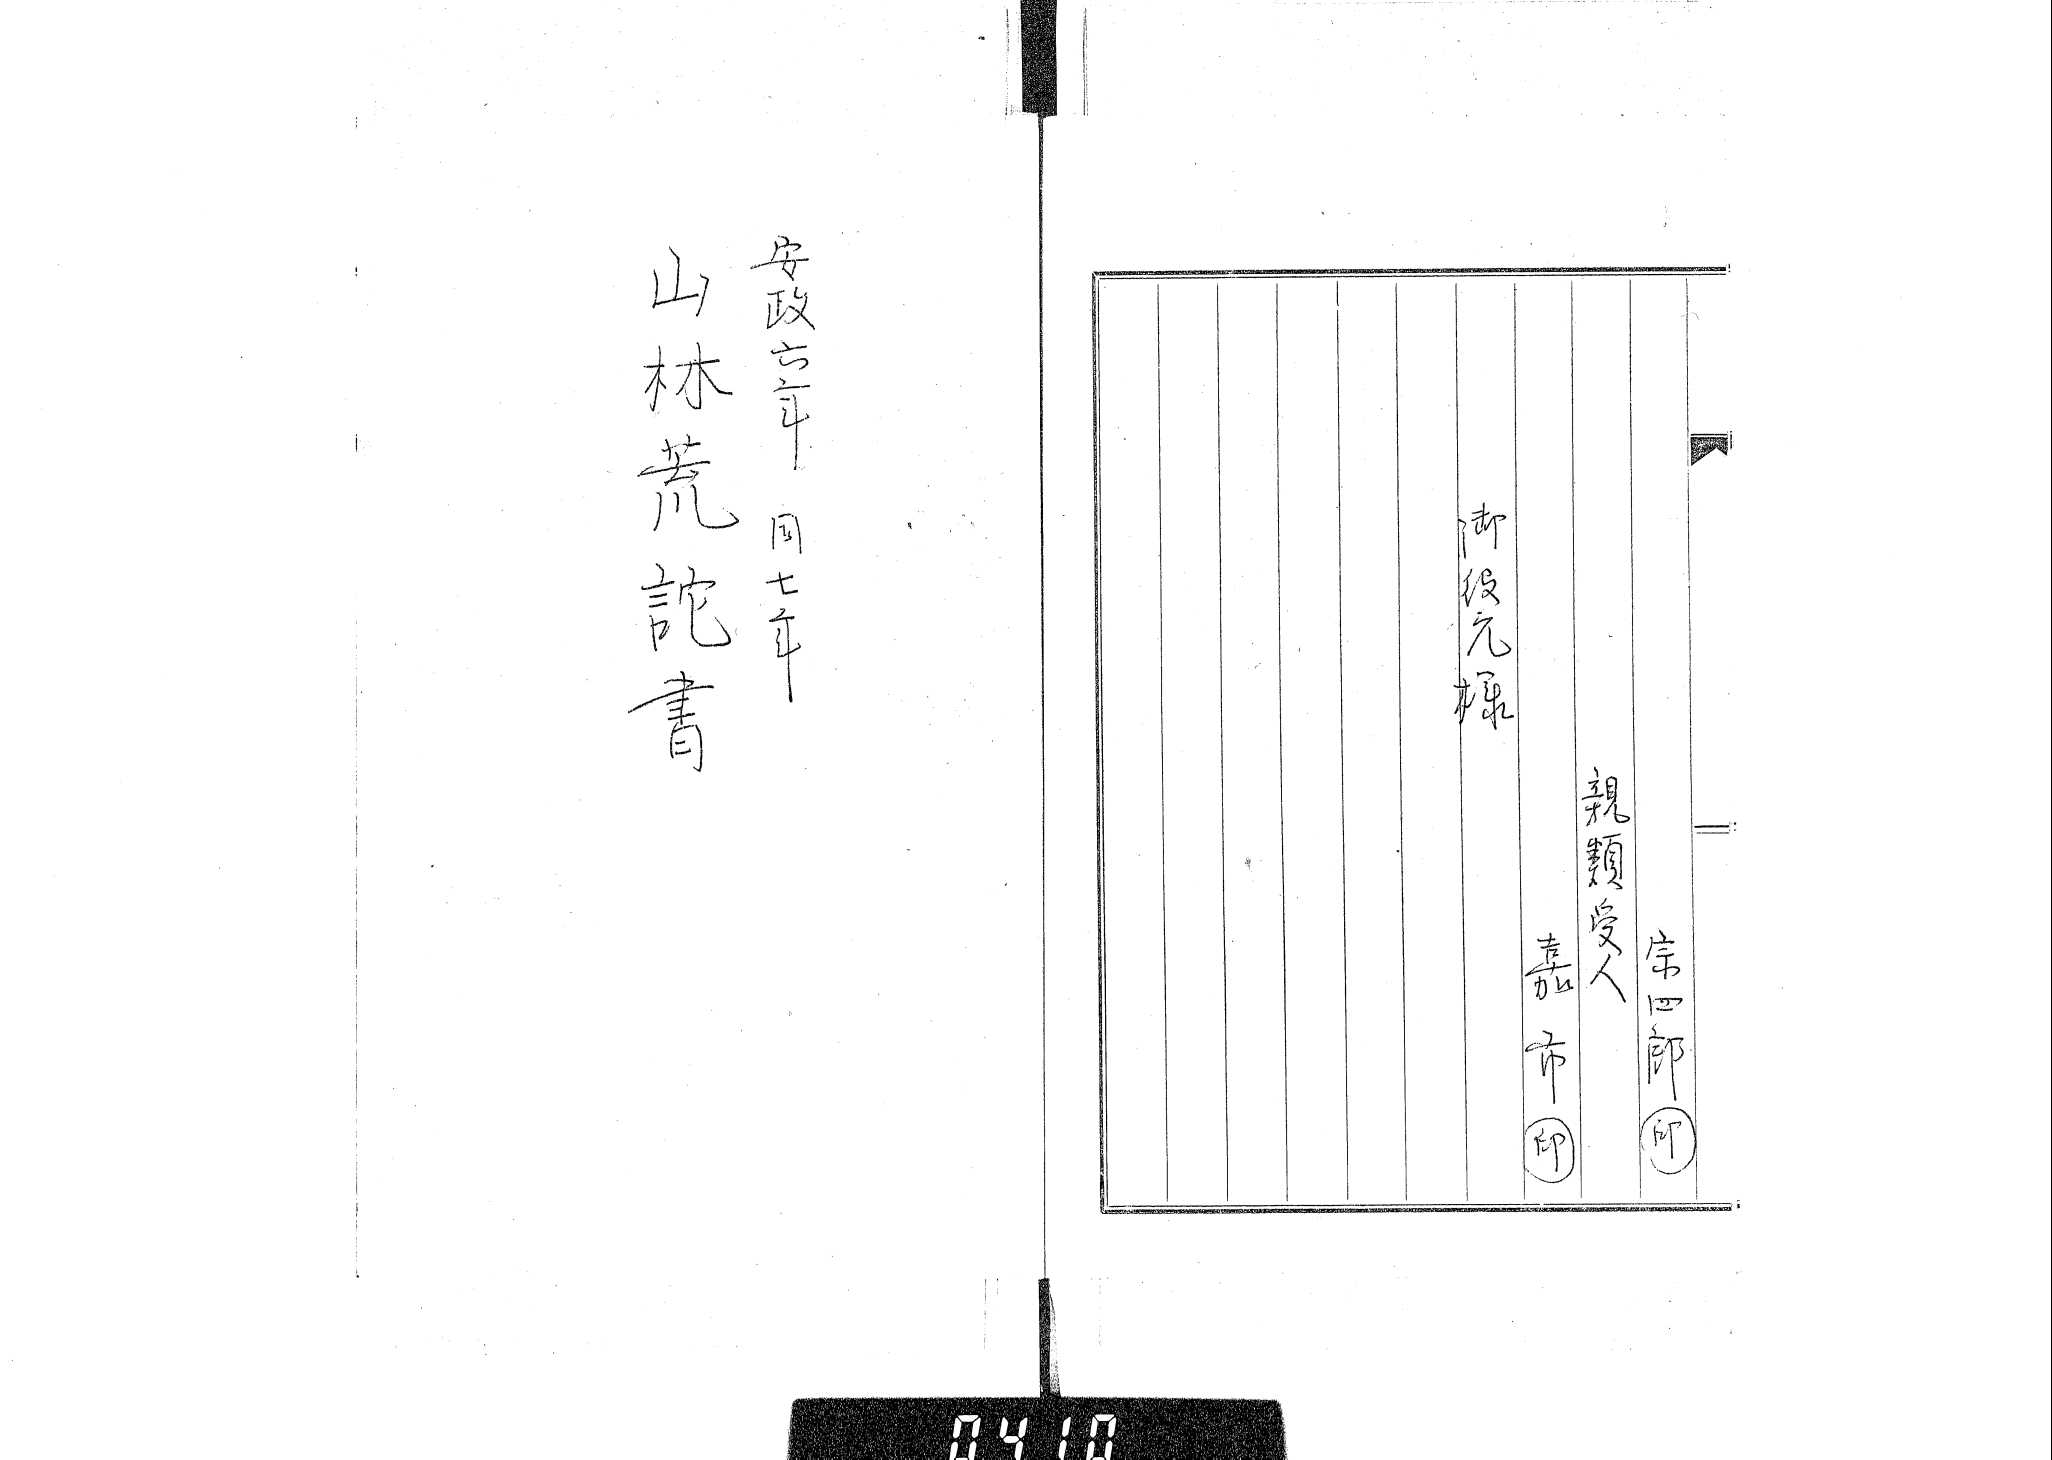 宗四郎㊞
親類受人
嘉市㊞
御役元様
安政六年 同七年
山林荒詫書
0410